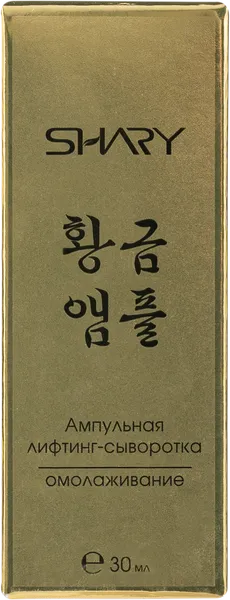 SHARY
황금
앰플
Ампульная
лифтинг-сыворотка
омолаживание
℮ 30 мл